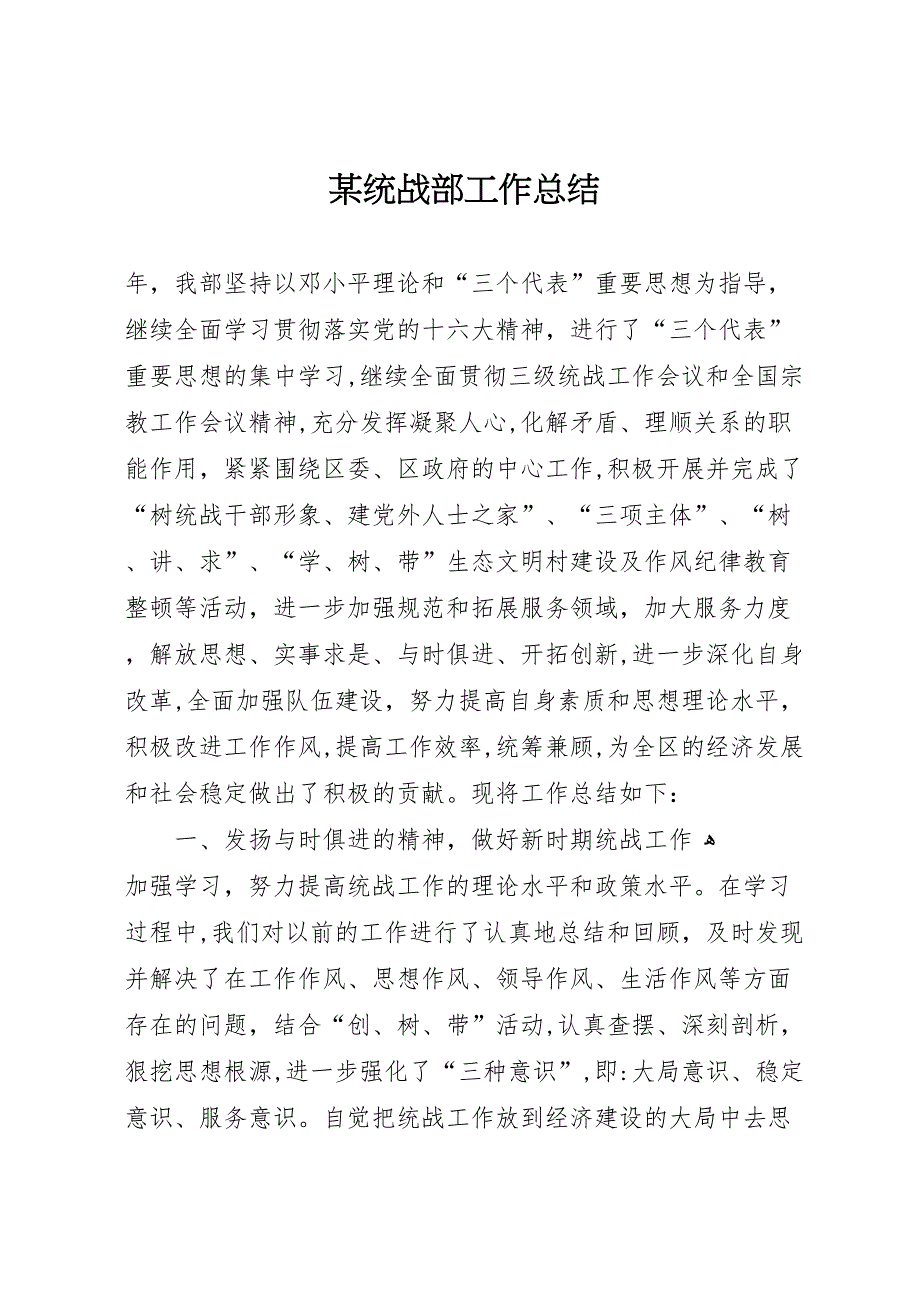 某统战部工作总结
年，我部坚持以邓小平理论和“三个代表”重要思想为指导，
继续全面学习贯彻落实党的十六大精神，进行了“三个代表”
重要思想的集中学习,继续全面贯彻三级统战工作会议和全国宗
教工作会议精神,充分发挥凝聚人心,化解矛盾、理顺关系的职
能作用，紧紧围绕区委、区政府的中心工作,积极开展并完成了
“树统战干部形象、建党外人士之家”、“三项主体”、“树
、讲、求”、“学、树、带”生态文明村建设及作风纪律教育
整顿等活动，进一步加强规范和拓展服务领域，加大服务力度
，解放思想、实事求是、与时俱进、开拓创新,进一步深化自身
改革,全面加强队伍建设，努力提高自身素质和思想理论水平，
积极改进工作作风,提高工作效率,统筹兼顾,为全区的经济发展
和社会稳定做出了积极的贡献。现将工作总结如下：
一、发扬与时俱进的精神，做好新时期统战工作 ﻫ
加强学习，努力提高统战工作的理论水平和政策水平。在学习
过程中,我们对以前的工作进行了认真地总结和回顾，及时发现
并解决了在工作作风、思想作风、领导作风、生活作风等方面
存在的问题，结合“创、树、带”活动,认真查摆、深刻剖析，
狠挖思想根源,进一步强化了“三种意识”,即:大局意识、稳定
意识、服务意识。自觉把统战工作放到经济建设的大局中去思